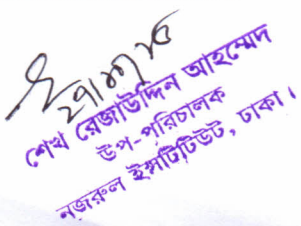 শেখ রেজাউদ্দিন আহম্মেদ
উপ-পরিচালক
নজরুল ইন্সটিটিউট, ঢাকা।